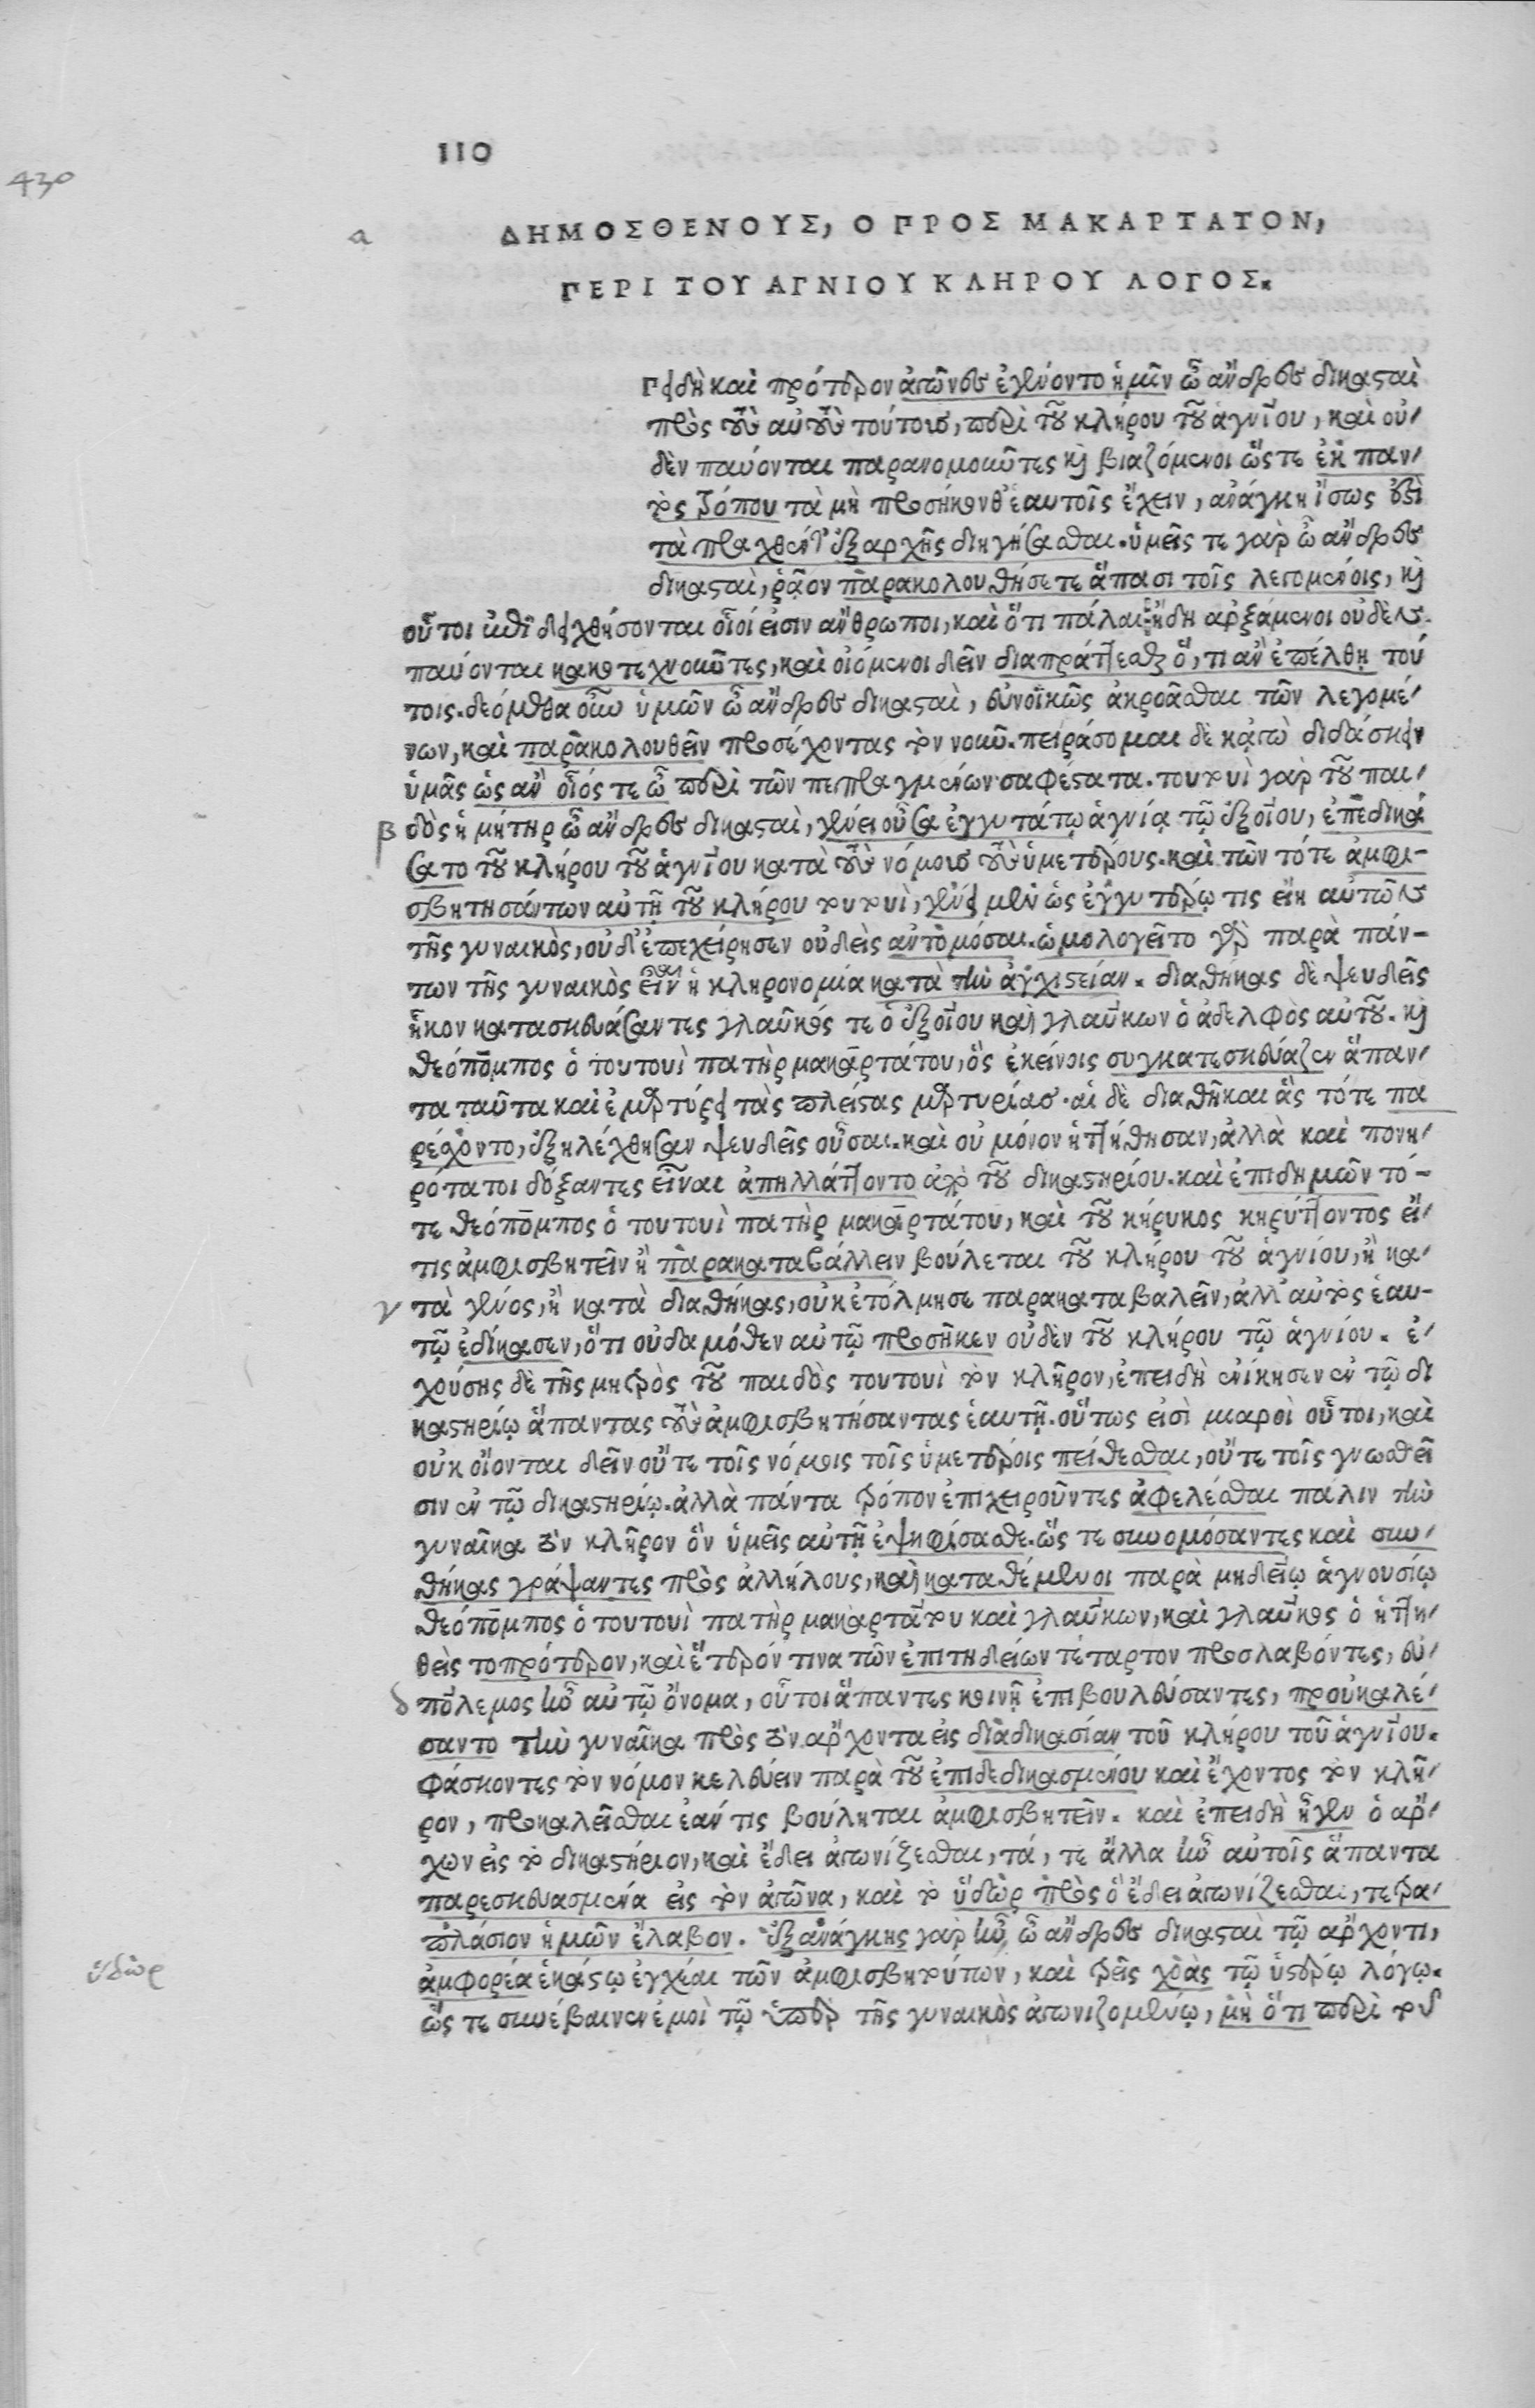 110
430
α
ΔΗΜΟΣΘΕΝΟΥΣ, Ο ΠΡΟΣ ΜΑΚΑΡΤΑΤΟΝ,
ΠΕΡΙ ΤΟΥ ΑΓΝΙΟΥ ΚΛΗΡΟΥ ΛΟΓΟΣ.
πειδὴ καὶ πρότερον ἀγῶνες ἐγένοντο ἡμῖν ὦ ἄνδρες δικασταὶ
πρὸς τοὺς αὐτοὺς τούτους, περὶ τοῦ κλήρου τοῦ ἁγνίου, καὶ οὐ-
δὲν παύονται παρανομοῦντες καὶ βιαζόμενοι ὥστε ἐκ παν-
τὸς τρόπου τὰ μὴ προσήκονθ' ἑαυτοῖς ἔχειν, ἀνάγκη ἴσως ἐστὶ
τὰ πραχθέντ' ἐξαρχῆς διηγήσασθαι. ὑμεῖς τε γὰρ ὦ ἄνδρες
δικασταὶ, ῥᾷον παρακολουθήσετε ἅπασι τοῖς λεγομένοις, καὶ
οὗτοι ἐπιδειχθήσονται οἷοί εἰσιν ἄνθρωποι, καὶ ὅτι πάλαι ἤδη ἀρξάμενοι οὐδὲν
παύονται κακοτεχνοῦντες, καὶ οἰόμενοι δεῖν διαπράττεσθαι ὅ, τι ἂν ἐπέλθῃ τού
τοις. δεόμεθα οὖν ὑμῶν ὦ ἄνδρες δικασταὶ, εὐνοϊκῶς ἀκροᾶσθαι τῶν λεγομέ-
νων, καὶ παρακολουθεῖν προσέχοντας τὸν νοῦν. πειράσομαι δὲ κἀγὼ διδάσκειν
ὑμᾶς ὡς ἂν οἷός τε ὦ περὶ τῶν πεπραγμένων σαφέστατα. τουτουὶ γὰρ τοῦ παι-
β δὸς ἡ μήτηρ ὦ ἄνδρες δικασταὶ, γένει οὖσα ἐγγυτάτω ἁγνίᾳ τῷ ἐξοΐου, ἐπεδικά
σατο τοῦ κλήρου τοῦ ἁγνίου κατὰ τοὺς νόμους τοὺς ὑμετέρους. καὶ τῶν τότε ἀμφι-
σβητησάντων αὐτῇ τοῦ κλήρου τουτουὶ, γένει μὲν ὡς ἐγγυτέρω τις εἴη αὐτῶν
τῆς γυναικὸς, οὐδ' ἐπεχείρησεν οὐδεὶς ἀντομόσαι. ὡμολογεῖτο γὰρ παρὰ πάν-
των τῆς γυναικὸς εἶναι ἡ κληρονομία κατὰ τὴν ἀγχιστείαν. διαθήκας δὲ ψευδεῖς
ἧκον κατασκευάσαντες γλαῦκός τε ὁ ἐξοΐου καὶ γλαύκων ὁ ἀδελφὸς αὐτοῦ. καὶ
θεόπομπος ὁ τουτουὶ πατὴρ μακαρτάτου, ὃς ἐκείνοις συγκατεσκεύαζεν ἅπαν-
τα ταῦτα καὶ ἐμαρτύρει τὰς πλείστας μαρτυρίας. αἱ δὲ διαθῆκαι ἃς τότε πα
ρέχοντο, ἐξηλέχθησαν ψευδεῖς οὖσαι. καὶ οὐ μόνον ἡττήθησαν, ἀλλὰ καὶ πονη-
ρότατοι δόξαντες εἶναι ἀπηλλάττοντο ἀπὸ τοῦ δικαστηρίου. καὶ ἐπιδημῶν τό-
τε θεόπομπος ὁ τουτουὶ πατὴρ μακαρτάτου, καὶ τοῦ κήρυκος κηρύττοντος εἴ-
τις ἀμφισβητεῖν ἢ παρακαταβάλλειν βούλεται τοῦ κλήρου τοῦ ἁγνίου, ἢ κα-
γ τὰ γένος, ἢ κατὰ διαθήκας, οὐκ ἐτόλμησε παρακαταβαλεῖν, ἀλλ' αὐτὸς ἑαυ-
τῷ ἐδίκασεν, ὅτι οὐδαμόθεν αὐτῷ προσῆκεν οὐδὲν τοῦ κλήρου τῷ ἁγνίου. ἐ-
χούσης δὲ τῆς μητρὸς τοῦ παιδὸς τουτουὶ τὸν κλῆρον, ἐπειδὴ ἐνίκησεν ἐν τῷ δι
καστηρίῳ ἅπαντας τοὺς ἀμφισβητήσαντας ἑαυτῇ. οὕτως εἰσὶ μιαροὶ οὗτοι, καὶ
οὐκ οἴονται δεῖν οὔτε τοῖς νόμοις τοῖς ὑμετέροις πείθεσθαι, οὔτε τοῖς γνωσθεῖ
σιν ἐν τῷ δικαστηρίῳ. ἀλλὰ πάντα τρόπον ἐπιχειροῦντες ἀφελέσθαι πάλιν τὴν
γυναῖκα τὸν κλῆρον ὃν ὑμεῖς αὐτῇ ἐψηφίσασθε. ὥς τε συνομόσαντες καὶ συν-
θήκας γράψαντες πρὸς ἀλλήλους, καὶ καταθέμενοι παρὰ μηδείῳ ἁγνουσίῳ
θεόπομπος ὁ τουτουὶ πατὴρ μακαρτάτου καὶ γλαύκων, καὶ γλαῦκος ὁ ἡττη-
θεὶς τοπρότερον, καὶ ἕτερόν τινα τῶν ἐπιτηδείων τέταρτον προσλαβόντες, εὐ-
δ πόλεμος ἦν αὐτῷ ὄνομα, οὗτοι ἅπαντες κοινῇ ἐπιβουλεύσαντες, προὐκαλέ-
σαντο τὴν γυναῖκα πρὸς τὸν ἄρχοντα εἰς διαδικασίαν τοῦ κλήρου τοῦ ἁγνίου.
φάσκοντες τὸν νόμον κελεύειν παρὰ τοῦ ἐπιδεδικασμένου καὶ ἔχοντος τὸν κλῆ-
ρον, προκαλεῖσθαι ἐάν τις βούληται ἀμφισβητεῖν. καὶ ἐπειδὴ ἦγεν ὁ ἄρ-
χων εἰς τὸ δικαστήριον, καὶ ἔδει ἀγωνίζεσθαι, τά, τε ἄλλα ἦν αὐτοῖς ἅπαντα
παρεσκευασμένα εἰς τὸν ἀγῶνα, καὶ τὸ ὕδωρ πρὸς ὃ ἔδει ἀγωνίζεσθαι, τετρα-
πλάσιον ἡμῶν ἔλαβον. ἐξανάγκης γὰρ ἦν ὦ ἄνδρες δικασταὶ τῷ ἄρχοντι,
ὕδωρ ἀμφορέα ἑκάστῳ ἐγχέαι τῶν ἀμφισβητούντων, καὶ τρεῖς χοὰς τῷ ὑστέρῳ λόγῳ.
ὥς τε συνέβαινεν ἐμοὶ τῷ ὑπὲρ τῆς γυναικὸς ἀγωνιζομένῳ, μὴ ὅτι περὶ τοῦ